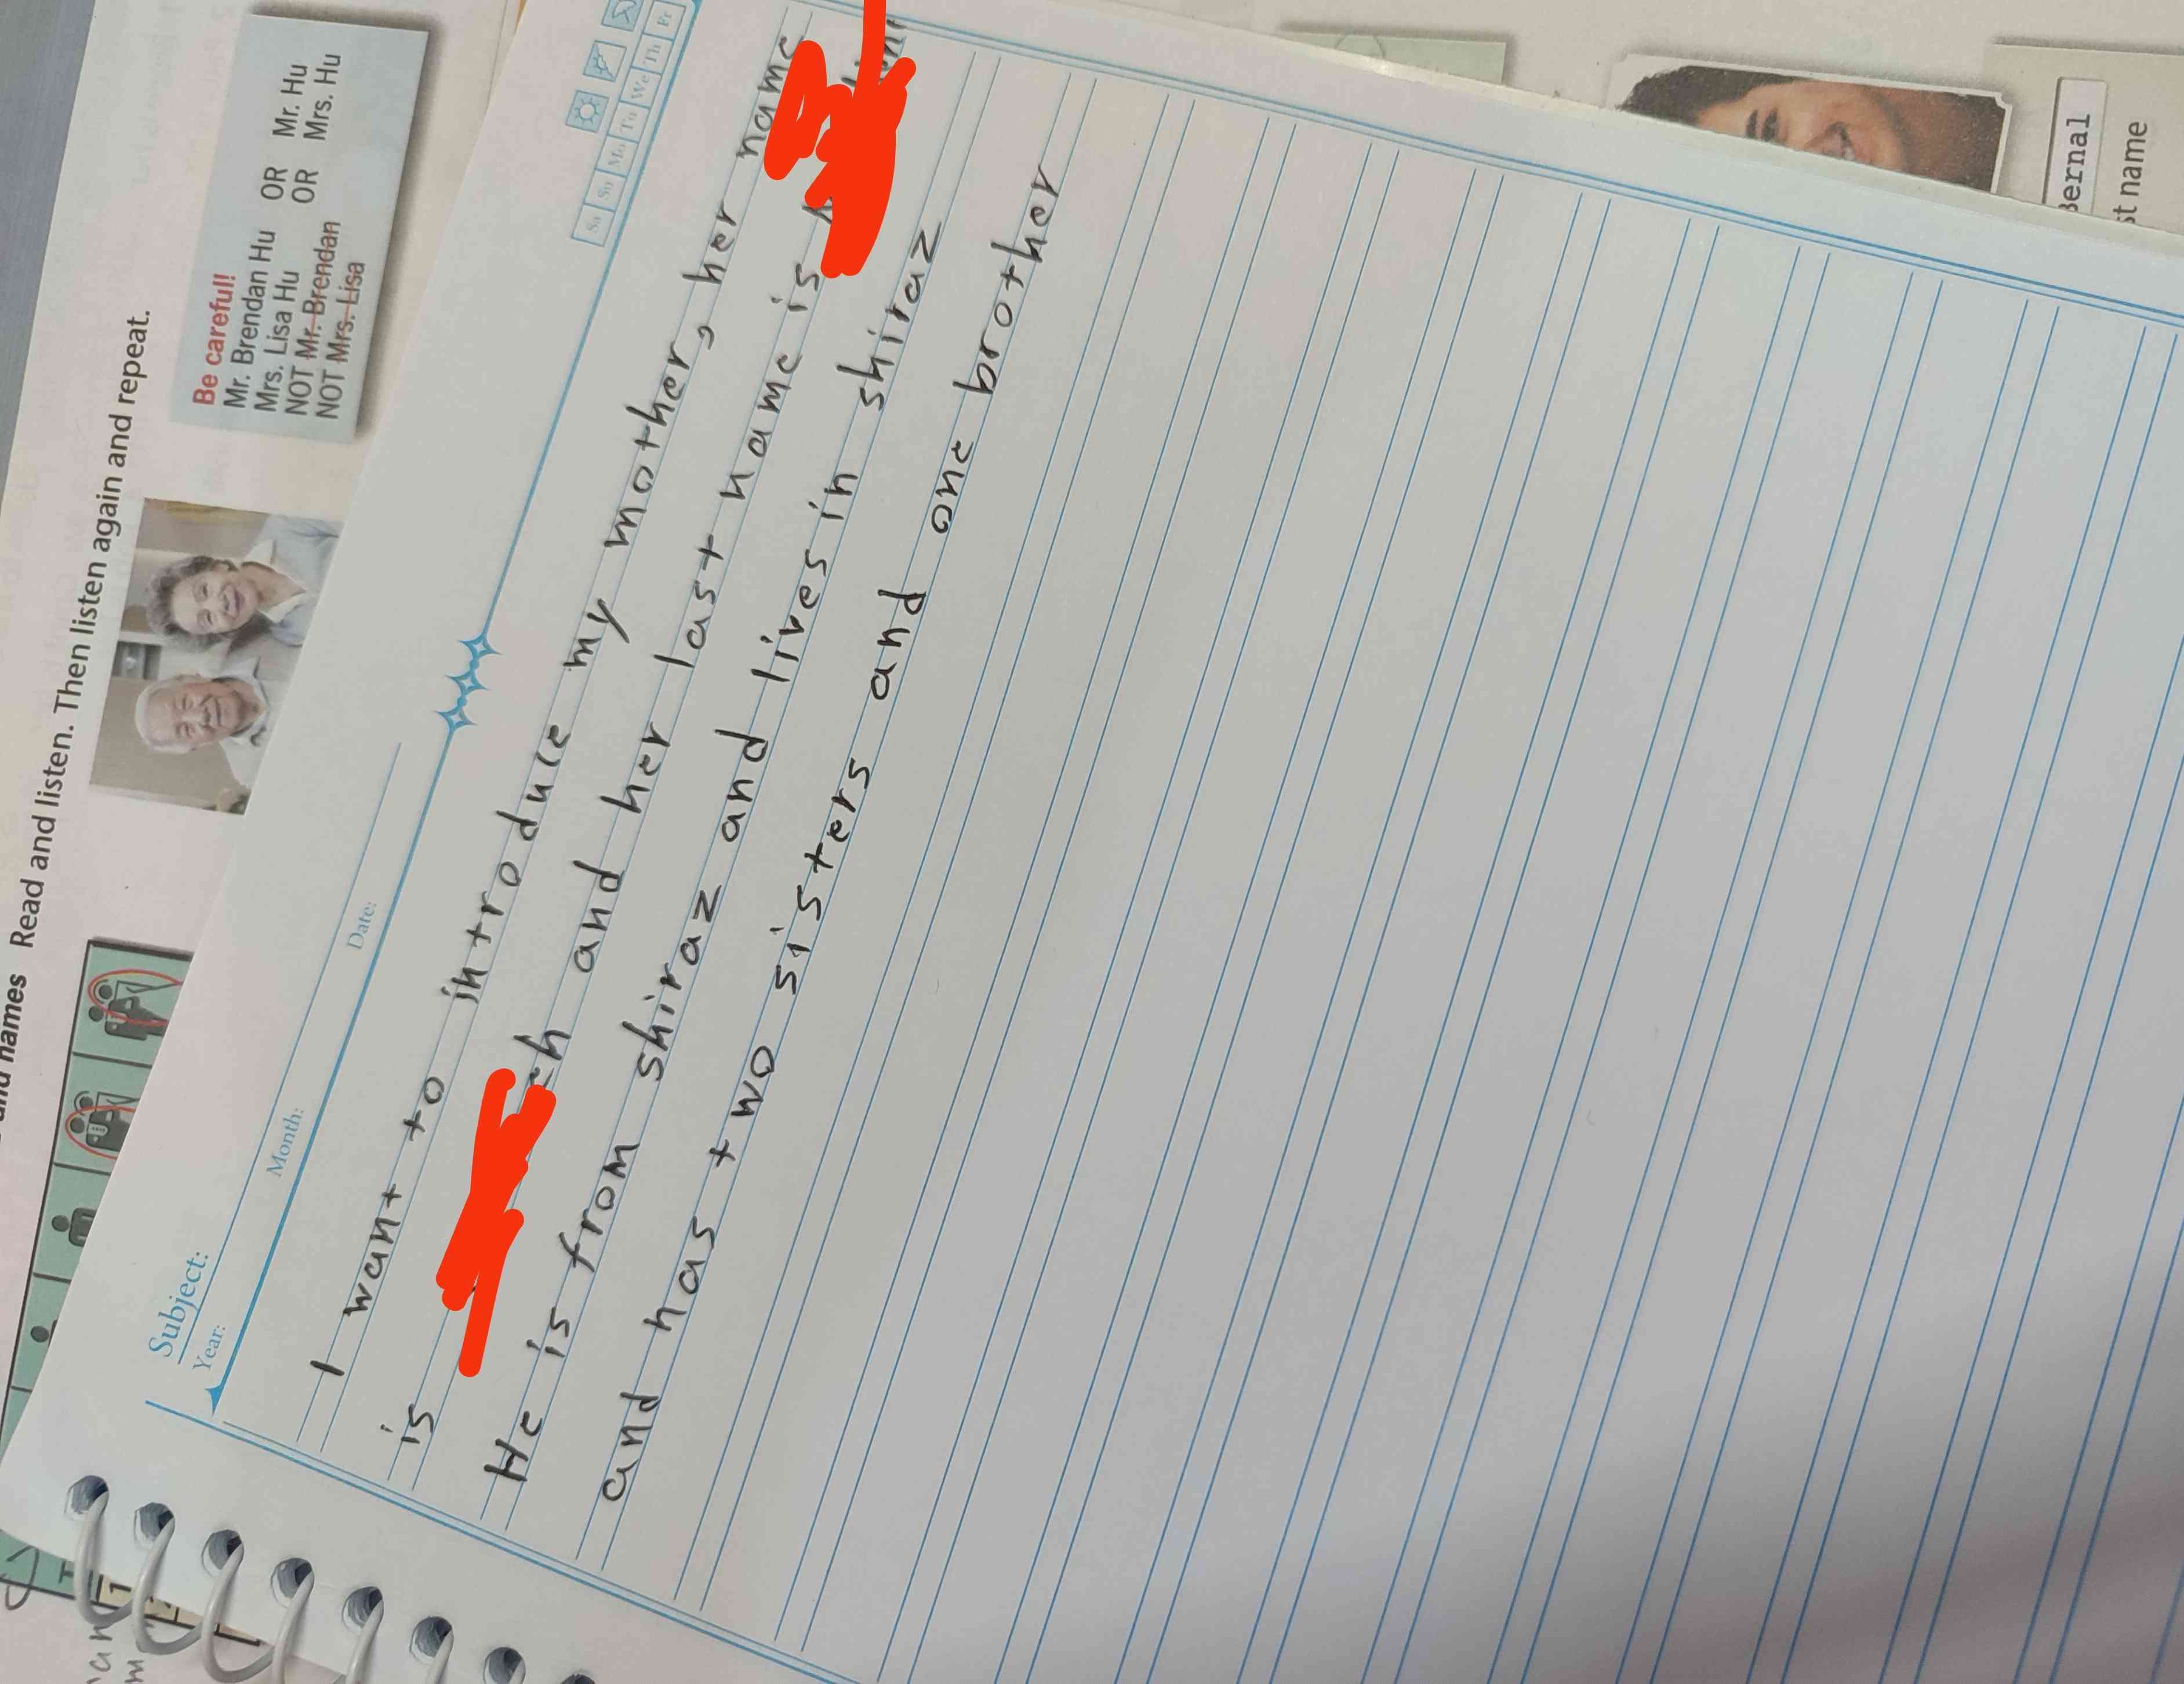 and names Read and listen. Then listen again and repeat.
Be careful!
Mr. Brendan Hu OR Mr. Hu
Mrs. Lisa Hu OR Mrs. Hu
NOT Mr. Brendan
NOT Mrs. Lisa
Subject:
Year: Month: Date:
Sa Su Mo Tu We Th Fr
I want to introduce my mother, her name
is and her last name is
He is from shiraz and lives in shiraz
and has two sisters and one brother
Bernal
st name
1